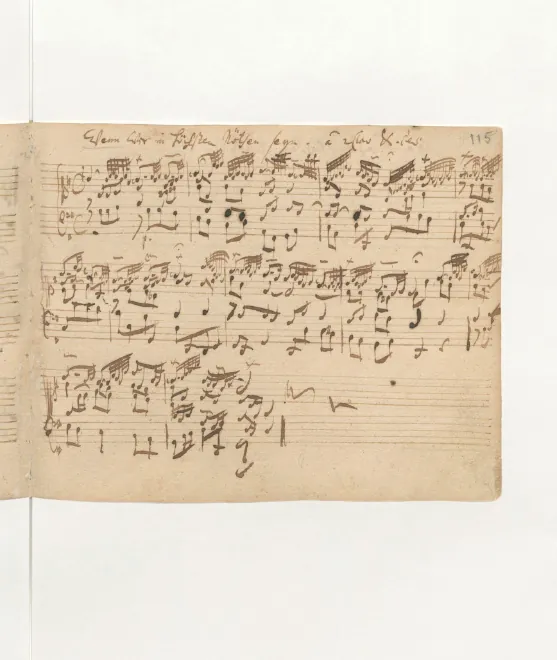 Wenn wir in höchsten Nöthen seyn â 2 Clav. & Ped. 115